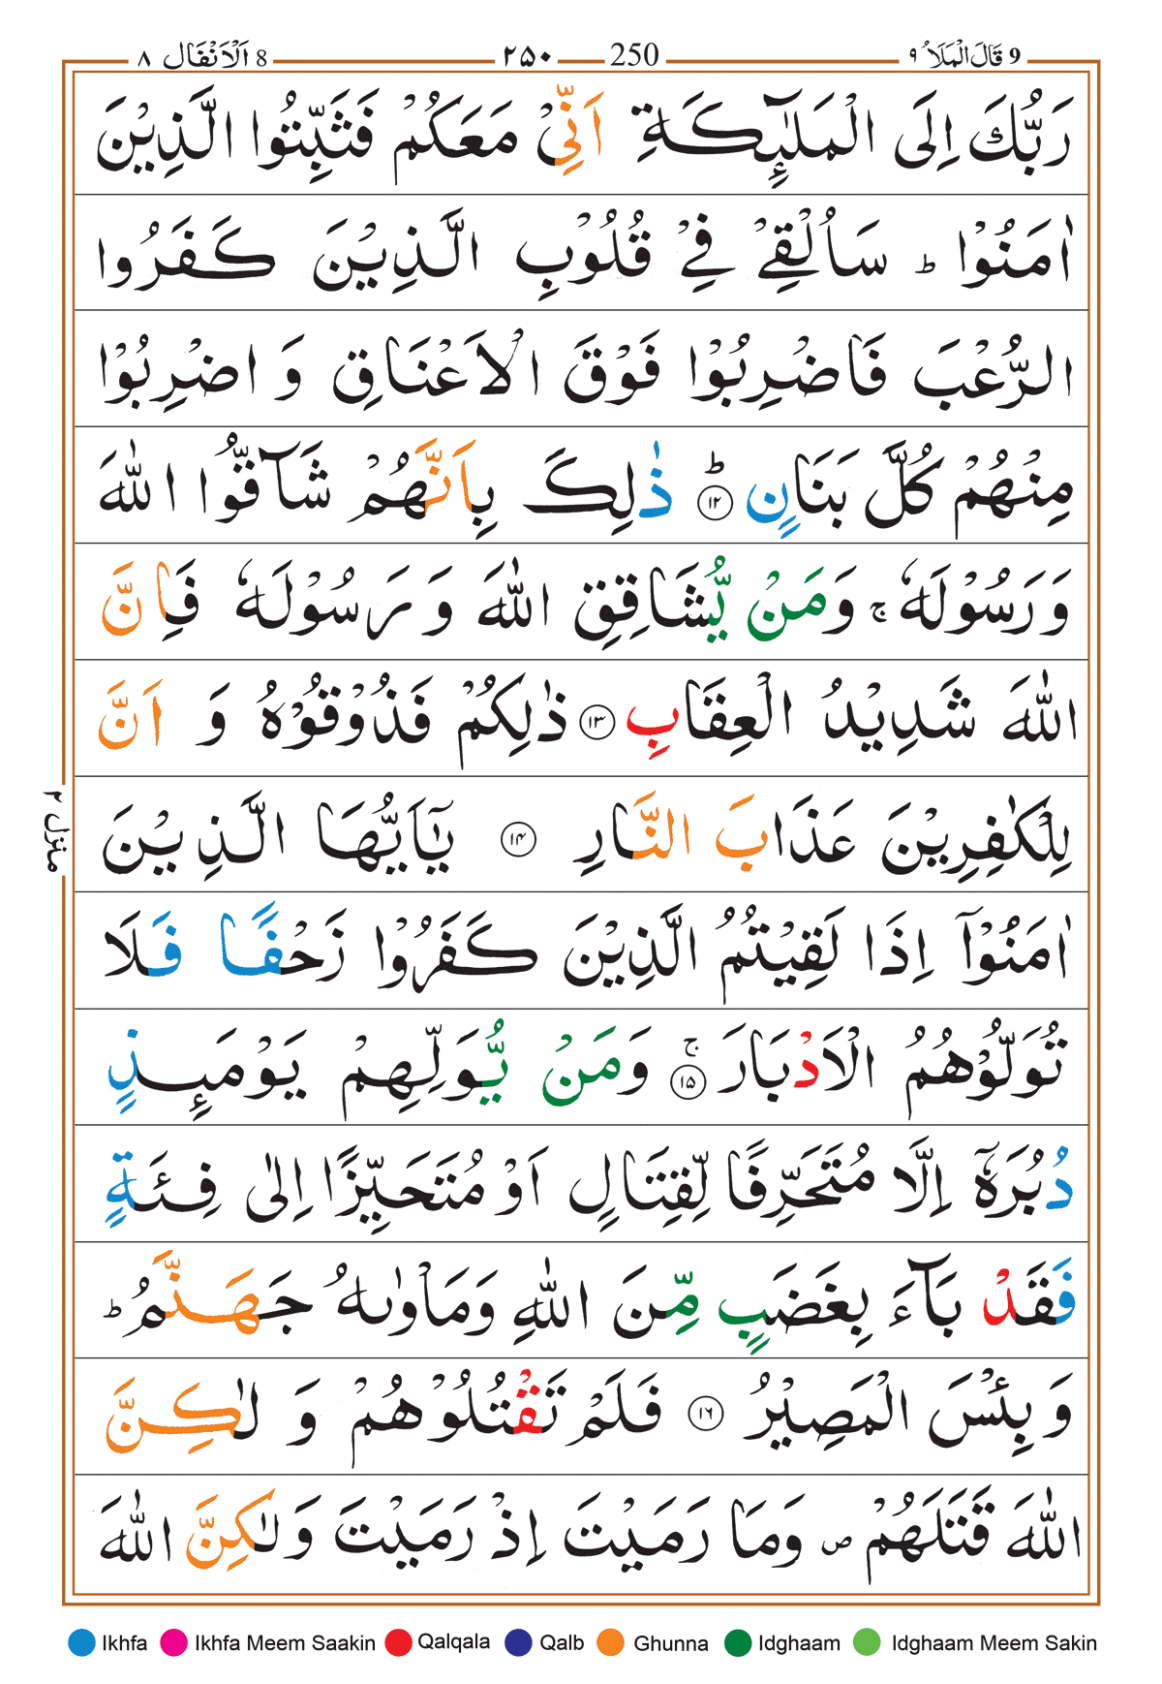 9 قَالَ الْمَلَاُ ۹ 250 ۲۵۰ 8 اَلْاَنْفَال ۸
رَبُّكَ اِلَى الْمَلٰٓئِكَةِ اَنِّىْ مَعَكُمْ فَثَبِّتُوا الَّذِيْنَ
اٰمَنُوْا ؕ سَاُلْقِىْ فِىْ قُلُوْبِ الَّذِيْنَ كَفَرُوا
الرُّعْبَ فَاضْرِبُوْا فَوْقَ الْاَعْنَاقِ وَ اضْرِبُوْا
مِنْهُمْ كُلَّ بَنَانٍ ؕ ۱۲ ذٰلِكَ بِاَنَّهُمْ شَآقُّوا اللّٰهَ
وَ رَسُوْلَهٗ ۚ وَمَنْ يُّشَاقِقِ اللّٰهَ وَ رَسُوْلَهٗ فَاِنَّ
اللّٰهَ شَدِيْدُ الْعِقَابِ ۱۳ ذٰلِكُمْ فَذُوْقُوْهُ وَ اَنَّ
لِلْكٰفِرِيْنَ عَذَابَ النَّارِ ۱۴ يٰٓاَيُّهَا الَّذِيْنَ
اٰمَنُوْٓا اِذَا لَقِيْتُمُ الَّذِيْنَ كَفَرُوْا زَحْفًا فَلَا
تُوَلُّوْهُمُ الْاَدْبَارَ ۚ ۱۵ وَمَنْ يُّوَلِّهِمْ يَوْمَئِذٍ
دُبُرَهٗۤ اِلَّا مُتَحَرِّفًا لِّقِتَالٍ اَوْ مُتَحَيِّزًا اِلٰى فِئَةٍ
فَقَدْ بَآءَ بِغَضَبٍ مِّنَ اللّٰهِ وَمَاْوٰٮهُ جَهَنَّمُ ؕ
وَ بِئْسَ الْمَصِيْرُ ۱۶ فَلَمْ تَقْتُلُوْهُمْ وَ لٰكِنَّ
اللّٰهَ قَتَلَهُمْ ص وَمَا رَمَيْتَ اِذْ رَمَيْتَ وَلٰكِنَّ اللّٰهَ
منزل ۲
Ikhfa Ikhfa Meem Saakin Qalqala Qalb Ghunna Idghaam Idghaam Meem Sakin